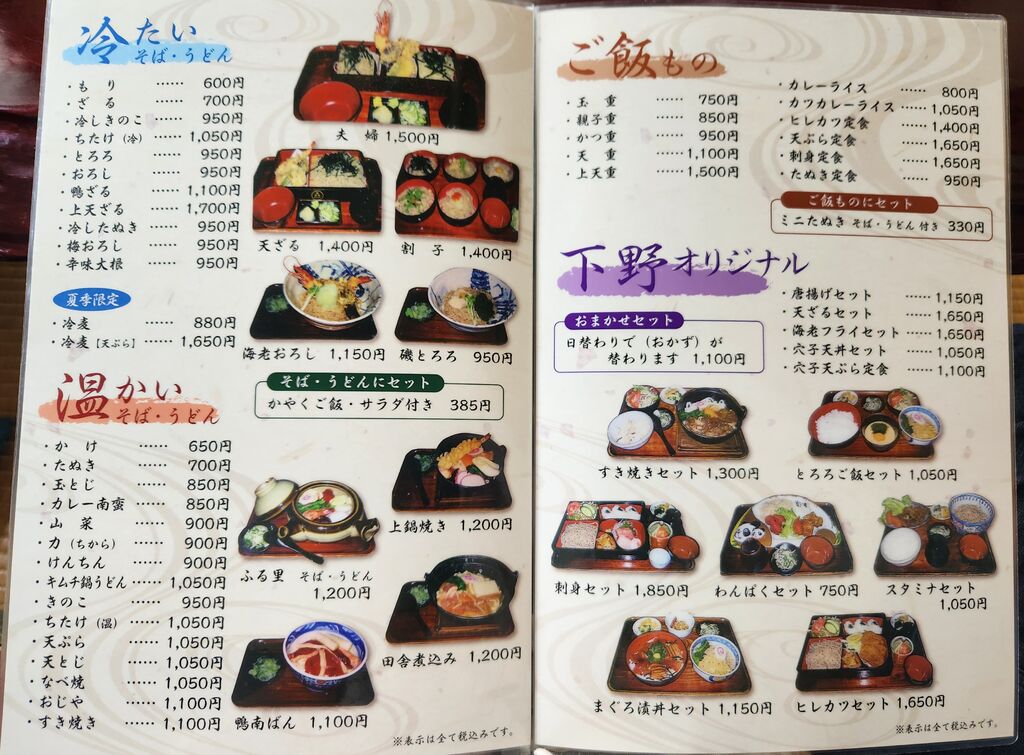 冷たい
そば・うどん
・もり …… 600円
・ざる …… 700円
・冷しきのこ …… 950円
・ちたけ(冷) …… 1,050円
・とろろ …… 950円
・おろし …… 950円
・鴨ざる …… 1,100円
・上天ざる …… 1,700円
・冷したぬき …… 950円
・梅おろし …… 950円
・辛味大根 …… 950円
夏季限定
・冷麦 …… 880円
・冷麦【天ぷら】 …… 1,650円
夫婦 1,500円
天ざる 1,400円
割子 1,400円
海老おろし 1,150円
磯とろろ 950円
そば・うどんにセット
かやくご飯・サラダ付き 385円
温かい
そば・うどん
・かけ …… 650円
・たぬき …… 700円
・玉とじ …… 850円
・カレー南蛮 …… 850円
・山菜 …… 900円
・力(ちから) …… 900円
・けんちん …… 900円
・キムチ鍋うどん …… 1,050円
・きのこ …… 950円
・ちたけ(温) …… 1,050円
・天ぷら …… 1,050円
・天とじ …… 1,050円
・なべ焼 …… 1,050円
・おじや …… 1,100円
・すき焼き …… 1,100円
上鍋焼き 1,200円
ふる里 そば・うどん
1,200円
田舎煮込み 1,200円
鴨南ばん 1,100円
※表示は全て税込みです。
ご飯もの
・玉重 …… 750円
・親子重 …… 850円
・かつ重 …… 950円
・天重 …… 1,100円
・上天重 …… 1,500円
・カレーライス …… 800円
・カツカレーライス …… 1,050円
・ヒレカツ定食 …… 1,400円
・天ぷら定食 …… 1,650円
・刺身定食 …… 1,650円
・たぬき定食 …… 950円
ご飯ものにセット
ミニたぬき そば・うどん 付き 330円
下野オリジナル
おまかせセット
日替わりで(おかず)が
替わります 1,100円
・唐揚げセット …… 1,150円
・天ざるセット …… 1,650円
・海老フライセット …… 1,650円
・穴子天丼セット …… 1,050円
・穴子天ぷら定食 …… 1,100円
すき焼きセット 1,300円
とろろご飯セット 1,050円
刺身セット 1,850円
わんぱくセット 750円
スタミナセット
1,050円
まぐろ漬丼セット 1,150円
ヒレカツセット 1,650円
※表示は全て税込みです。